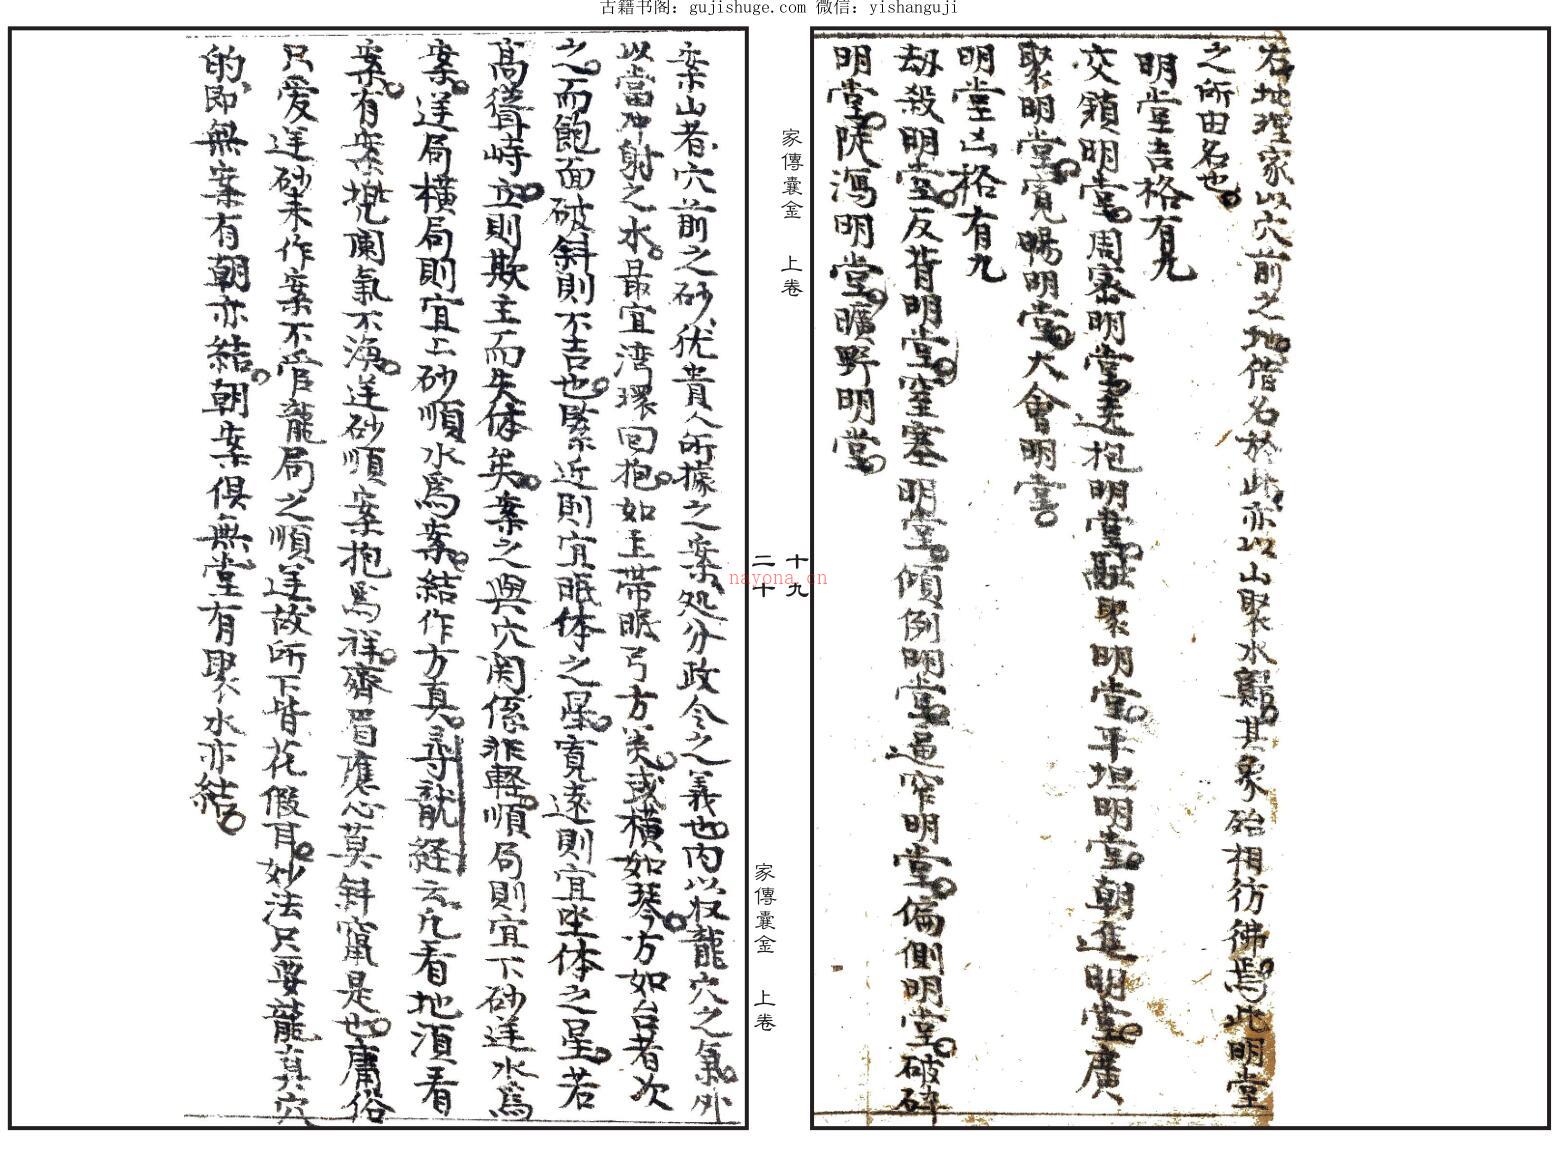 古籍书阁：gujishuge.com 微信：yishanguji
右地理家以穴前之地借名於此亦以山聚水歸其象殆相彷彿焉此明堂
之所由名也
明堂吉格有九
交鎖明堂周密明堂遶抱明堂融聚明堂平坦明堂朝進明堂廣
聚明堂寬暢明堂大會明堂
明堂凶格有九
劫殺明堂反背明堂窒塞明堂傾倒明堂逼窄明堂偏側明堂破碎
明堂陡瀉明堂曠野明堂
家傳囊金 上卷
十九
二十
家傳囊金 上卷
nayona.cn
案山者穴前之砂犹貴人所據之案処分政令之義也内以收龍穴之氣外
以當冲射之水最宜湾環囘抱如玉帶眠弓方

或横如琴方如台者次
之而飽面破斜則不吉也緊近則宜眠体之星寬遠則宜坐体之星若
高聳峙立則欺主而失体矣案之與穴関係非軽順局則宜下砂逆水爲
案逆局横局則宜上砂順水爲案結作方真尋龍経云凢看地須看
案有案兜闌氣不

逆砂順案抱爲祥齊眉應心莫斜竄是也庸俗
只爱逆砂来作案不管龍局之順逆故所下皆花假耳妙法只要龍真穴
的即無案有朝亦結朝案俱無堂有聚水亦結